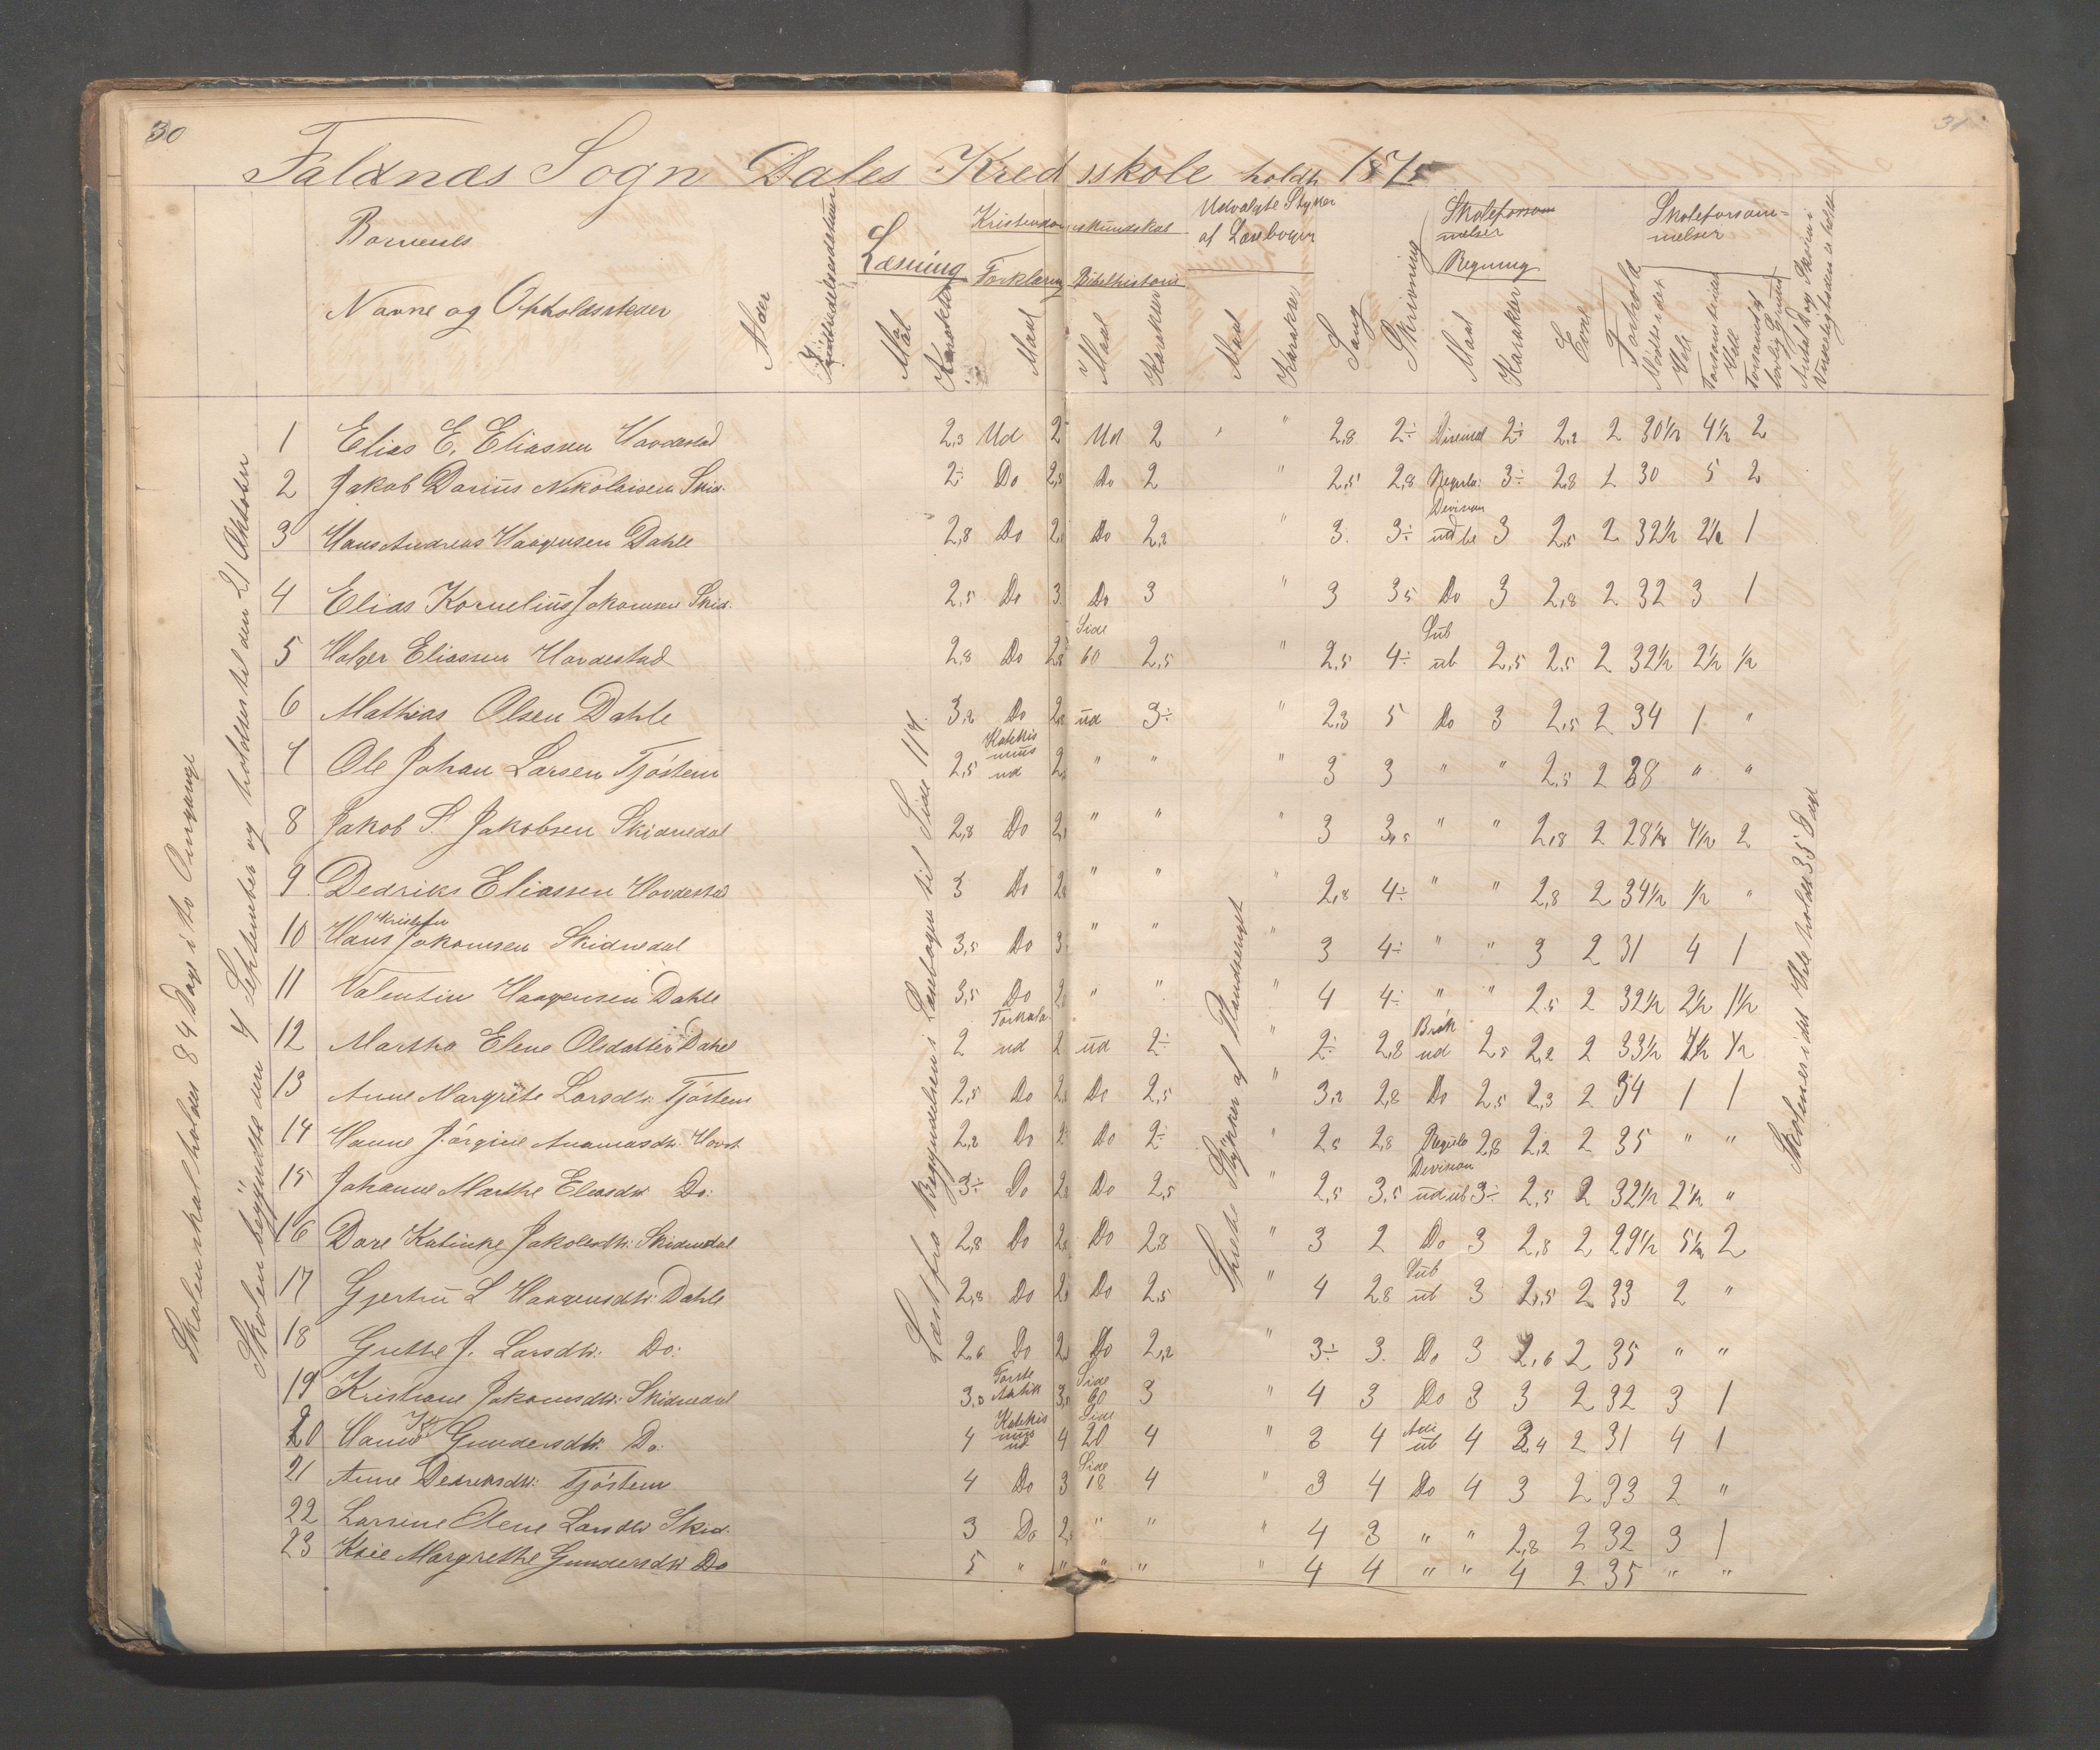 30
31
Faldnæs Sogn Dales Kredsskole holdt 1875
Børnenes
Navne og Opholdssteder
Alder
Læsning
Maal
Karakter
Kristendomskundskab
Forklaring
Maal
Bibelhistorie
Maal
Karakter
Udvalgte Stykker
af Læsebogen
Maal
Karakter
Sang
Skrivning
Skoleforsøm
melser
Regning
Maal
Karakter
Evne
Forhold
Skoleforsøm=
melser
Mødte i det Hele
Forsømte i det Hele
Forsømt af lovlig Grund
Antal Dage Skolen i Virkeligheden er holdt
Skolen skal holdes 84 Dage i to Omgange
Skolen begyndte den 7 September og holdtes til den 21 Oktober
Læst fra Begyndelsen i Læsebogen til Side 114
Spredte Stykker af Udvalget
Skolen er i det Hele holdt 35 Dage
1 Elias E. Eliassen Hovdestad 2,3 Ud 2 Ud 2 " " 2,8 2÷ 2÷ 2,2 2 30½ 4½ 2
2 Jakob Darius Nikolaisen Skid. 2÷ Do 2,5 Do 2 " 2,5 2,8 Regula 3÷ 2,8 2 30 5 2
3 Hans Andreas Haagensen Dahle 2,8 Do 2, Do 2,2 " 3 3÷ Division 3 2,5 2 32½ 2½ 1
4 Elias Kornelius Jakomsen Skid. 2,5 Do 3 Do 3 " 3 3,5 Do 3 2,8 2 32 3 1
5 Holger Eliassen Hovdestad 2,8 Do 2,8 Side 60 2,5 " 2,5 4÷ Sub ub 2,5 2,5 2 32½ 2½ ½
6 Mathias Olsen Dahle 3,2 Do 2, ud 3÷ " 2,3 5 Do 3 2,5 2 34 1 "
7 Ole Johan Larsen Tjøstem 2,5 Katekis mus ud 2, " " " 3 3 " " 2,5 2 28 " "
8 Jakob S Jakobsen Skidnedal 2,8 Do 2, " " " 3 3,5 " " 2,8 2 28½ 7½ 2
9 Dedriks Eliassen Hovdestad 3 Do 2, " " " 2,8 4÷ " " 2,8 2 34½ ½ "
10 Hans Kristofer Jakomsen Skidnedal 3,5 Do 3 " " " 3 4÷ " " 3 2 31 4 1
11 Valentin Haagensen Dahle 3,5 Do 2, " " " 4 4÷ " " 2,5 2 32½ 2½ 1½
12 Martha Elene Olsdatter Dahle 2 Forklar ud 2 ud 2÷ " 2÷ 2,8 Brøk ud 2,5 2,2 2 33½ 1½ ½
13 Anne Margrete Larsdtr. Tjøstem 2,5 Do 2, Do 2,5 " 3,2 2,8 Do 2,5 2,3 2 34 1 1
14 Hanne Jørgine Hovst. 2,2 Do 2 Do 2÷ " 2,5 2,8 Regula 2,8 2,2 2 35 " "
15 Johanne Marthe Eliasdtr Do: 3÷ Do 2, Do 2,5 " 2,5 3,5 Division ud ub 3÷ 2,5 2 32½ 2½ "
16 Dare Katinke Jakobsdtr: Skidnedal 2,8 Do 2, Do 2,8 " 3 2 Do 3 2,8 2 29½ 5½ 2
17 Gjertru L Haagensdtr: Dahle 2,8 Do 2, Do 2,5 " 4 2,8 Sub ub 3 2,5 2 33 2 "
18 Grethe J. Larsdtr. Do: 2,6 Do 2, Do 2,2 " 3÷ 3 Do 3 2,6 2 35 " "
19 Kristiane Jakomsdtr: Skidnedal 3,5 Første Artik 3, Side 60 3 " 4 3 Do 3 3 2 32 3 1
20 Hanne Gundersdtr. Do: 4 Katekis mus ud 4 Side 20 4 " 3 4 Adi ub 4 3,4 2 31 4 1
21 Anne Dedriksdtr: Tjøstem 4 Do 3 Side 18 4 " 3 4 Do 4 3 2 33 2 "
22 Larsine Olene Larsdtr Skid. 3 Do 2, " " " 4 3 " " 2,8 2 32 3 1
23 Margrethe Gundersdtr Do 5 " " " " " 4 4 " " 4 2 35 " "